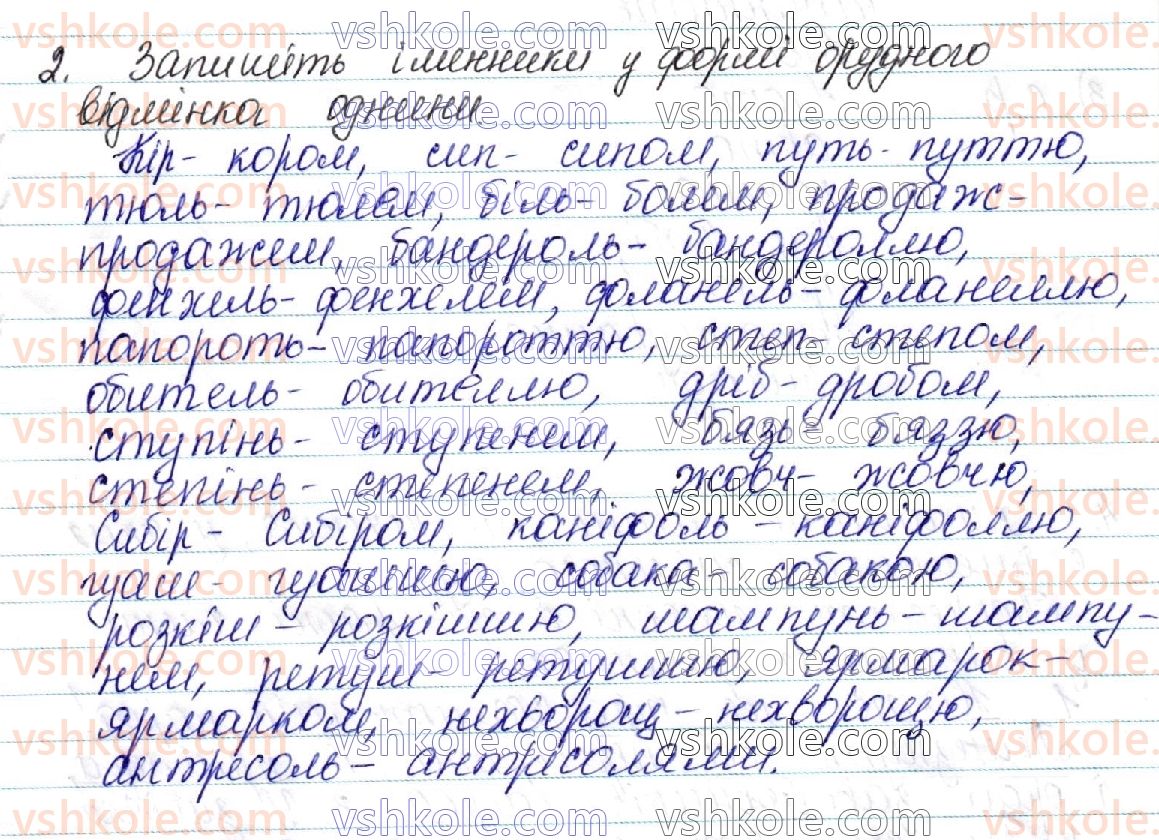 2. Запишіть іменники у формі орудного
відмінка однини
Кір - кором, сип - сипом, путь - путтю,
тюль - тюлем, біль - болем, продаж -
продажем, бандероль - бандероллю,
фенхель - фенхелем, фланель - фланеллю,
папороть - папороттю, степ - степом,
обитель - обителлю, дріб - дробом,
ступінь - ступенем, бязь - бяззю,
степінь - степенем, жовч - жовчю,
Сибір - Сибіром, каніфоль - каніфоллю,
гуаш - гуашшю, собака - собакою,
розкіш - розкішшю, шампунь - шампу-
нем, ретуш - ретушшю, ярмарок -
ярмарком, нехворощ - нехворощю,
антресоль - антресолями.